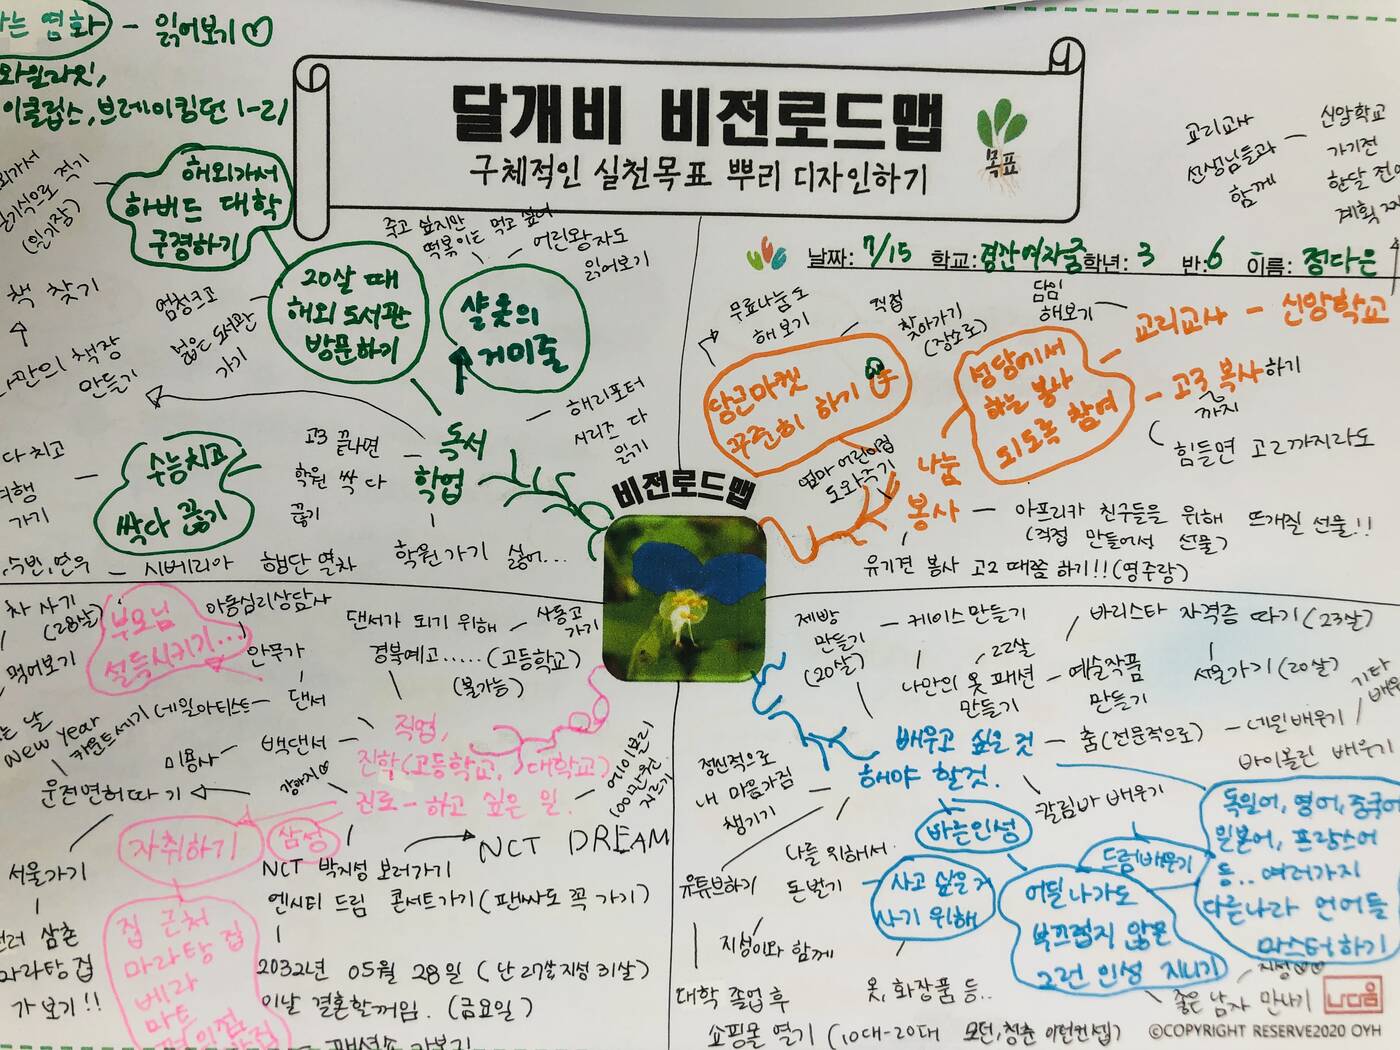 는 영화 - 읽어보기
이클립스, 브레이킹던 1-2
달개비 비전로드맵
구체적인 실천목표 뿌리 디자인하기
목표
교리교사
선생님들과
함께
신앙학교
가기전
한달 전에
계획
날짜: 7/15 학교: 경산여자중 학년: 3 반: 6 이름: 정다은
해외가서
하버드 대학
구경하기
적기
(일기장)
20살 때
해외 도서관
방문하기
엄청크고
넓은 도서관
가기
죽고 싶지만
떡볶이는 먹고 싶어
어린왕자도
읽어보기
샬롯의
거미줄
책 찾기
만의 책장
만들기
독서
학업
해리포터
시리즈 다
읽기
수능치고
싹다 끊기
다 치고
여행
가기
고3 끝나면
학원 싹 다
끊기
학원가기 싫어...
시베리아 횡단 열차
무료나눔도
해보기
직접
찾아가기
(장소로)
당근마켓
꾸준히 하기
엄마 어린이집
도와주기
나눔
봉사
성당에서
하는 봉사
되도록 참여
담임
해보기
교리교사 - 신앙학교
고3 복사하기
까지
힘들면 고2까지라도
아프리카 친구들을 위해 뜨개질 선물!!
(직접 만들어성 선물)
유기견 봉사 고2 때쯤 하기!! (명주랑)
비전로드맵
차 사기
(28살)
먹어보기
부모님
설득시키기...
아동심리상담사
안무가
댄서
네일아티스트
백댄서
미용사
new year
카운트세기
운전면허따기
댄서가 되기 위해 - 사동고
가기
경북예고..... (고등학교)
(불가능)
직업,
진학(고등학교, 대학교)
진로 - 하고 싶은 일.
에이블리
100만원
지르기
강아지
자취하기
삼성
NCT DREAM
NCT 박지성 보러가기
엔시티 드림 콘서트가기 (팬싸도 꼭 가기)
2032년 05월 28일 (난 27살 지성 31살)
이날 결혼할꺼임. (금요일)
서울가기
삼촌
마라탕 집
가보기!!
집 근처
마라탕 집
베라
마트
편의점
제빵
만들기
(20살)
케이스만들기
22살
나만의 옷 패션
만들기
예술작품
만들기
바리스타 자격증 따기 (23살)
서울가기 (20살)
배우고 싶은 것
해야 할것.
춤(전문적으로)
네일배우기
기타
바이올린 배우기
칼림바 배우기
정신적으로
내 마음가짐
챙기기
바른인성
드럼배우기
독일어, 영어, 중국어
일본어, 프랑스어
등.. 여러가지
다른나라 언어들
마스터하기
어딜 나가도
부끄럽지 않은
그런 인성 지니기
나를 위해서
돈벌기
사고 싶은거
사기 위해
유튜브하기
지성이와 함께
옷, 화장품 등..
대학 졸업 후
쇼핑몰 열기 (10대-20대 모던, 청춘 이런컨셉)
지성
좋은 남자 만나기
나다움
©COPYRIGHT RESERVE2020 OYH